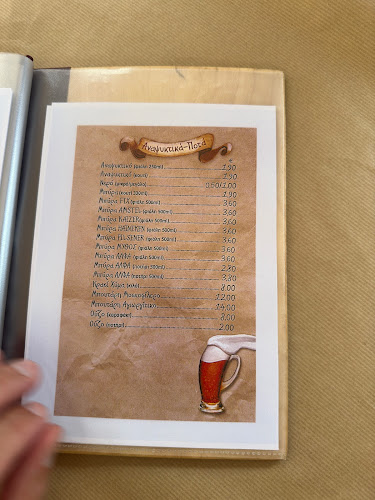 Αναψυκτικά-Ποτά
€
Αναψυκτικό (φιάλη 250ml) 1,90
Αναψυκτικό (κουτί) 1,90
Νερό (μικρό/μεγάλο) 0,50/1,00
Μπύρα (κουτί 330ml) 2,90
Μπύρα FIX (φιάλη 500ml) 3,60
Μπύρα AMSTEL (φιάλη 500ml) 3,60
Μπύρα KAIZER (φιάλη 500ml) 3,60
Μπύρα HAINIKEN (φιάλη 500ml) 3,60
Μπύρα (φιάλη 500ml) 3,60
Μπύρα ΜΥΘΟΣ (φιάλη 500ml) 3,60
Μπύρα ΑΛΦΑ (φιάλη 500ml) 3,60
Μπύρα ΑΛΦΑ (ποτήρι 300ml) 2,80
Μπύρα ΑΛΦΑ (ποτήρι 500ml) 3,30
Κρασί Χύμα (κιλό) 8,00
Μπουτάρη Μοσχοφίλερο 12,00
Μπουτάρη Αγιωργίτικο 14,00
Ούζο (καραφάκι) 8,00
Ούζο (ποτήρι) 2,00